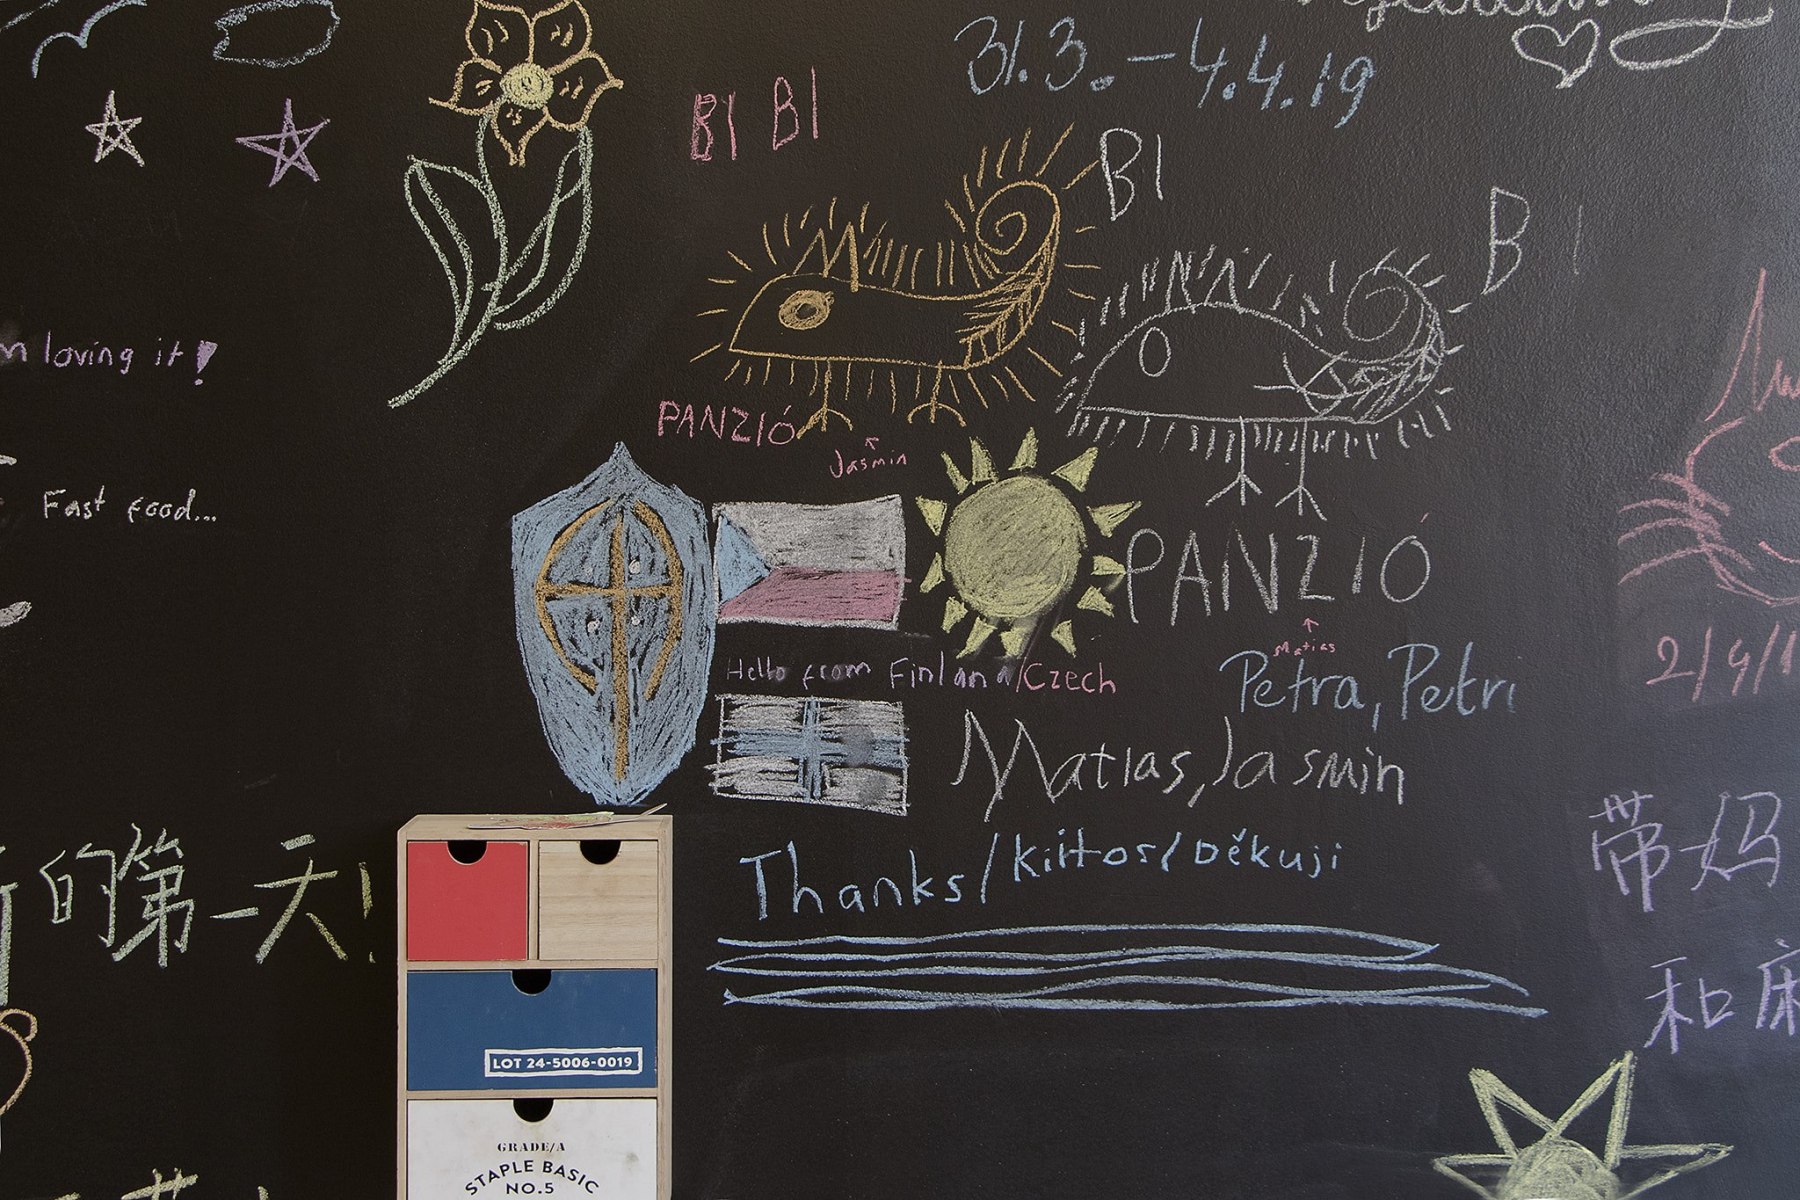 31.3.-4.4.19
BI BI
BI
BI
m loving it!
PANZIÓ
Jasmin
Fast food...
PANZIÓ
Matias
Hello from Finland/Czech
Petra, Petri
2/4/1
Matias, Jasmin
Thanks/Kiitos/Děkuji
的第一天!
带妈
和
LOT 24-5006-0019
GRADE/A
STAPLE BASIC
NO.5